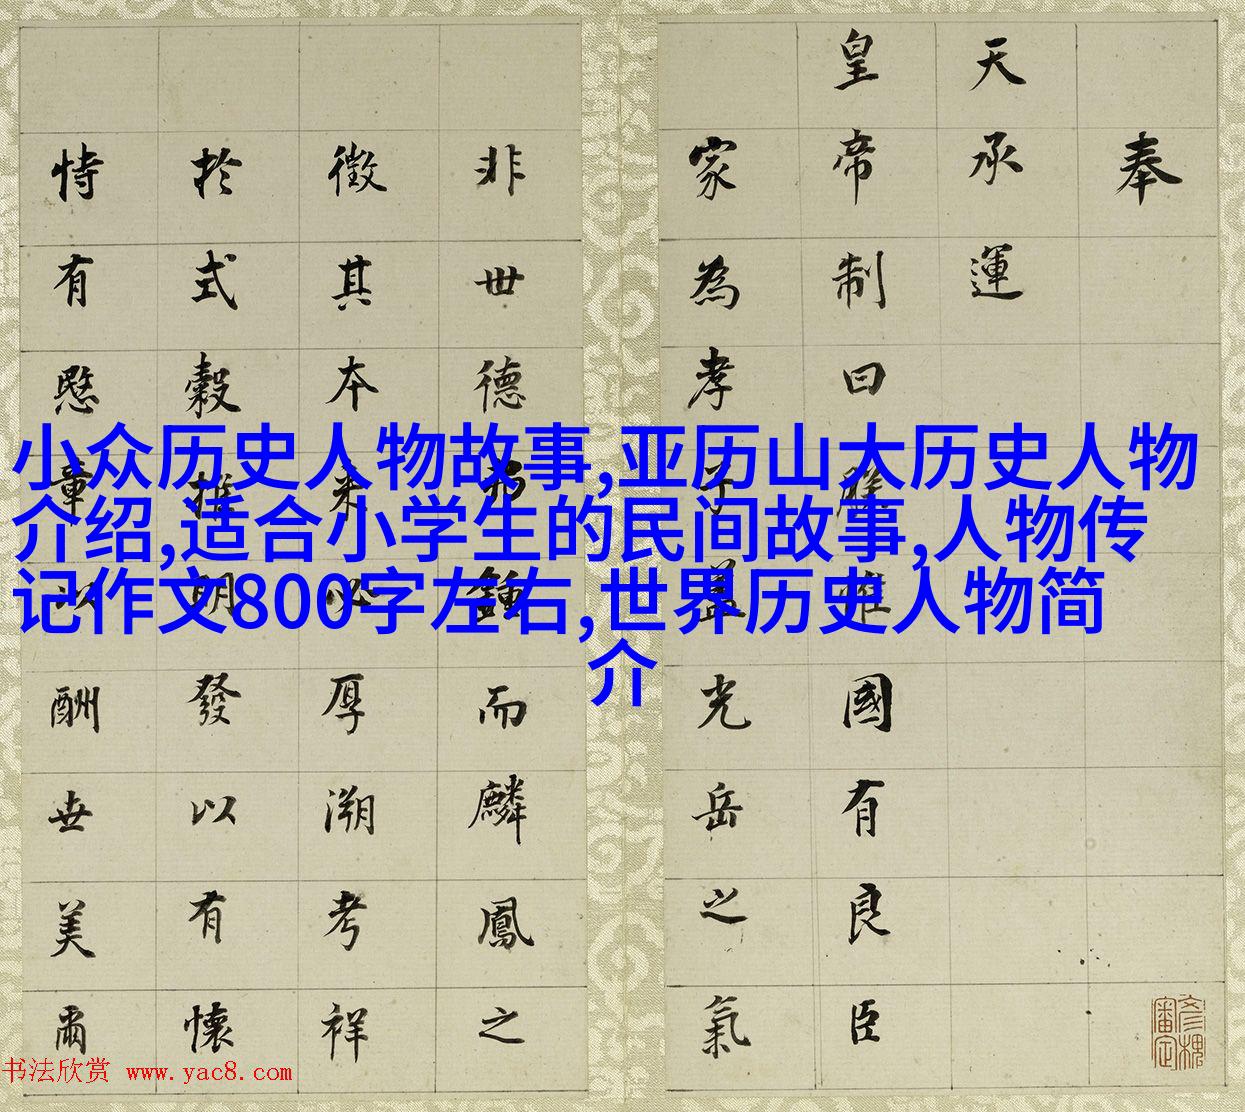 奉
天承運
皇帝制曰朕惟國有良臣
家為孝子蓋光岳之氣
非世德弗鍾而麟鳳之
徵其本来必厚溯考祥
於式穀推明發以有懷
特有愍章以酬世美爾
小众历史人物故事,亚历山大历史人物
介绍,适合小学生的民间故事,人物传
记作文800字左右,世界历史人物简
介
书法欣赏 www.yac8.com